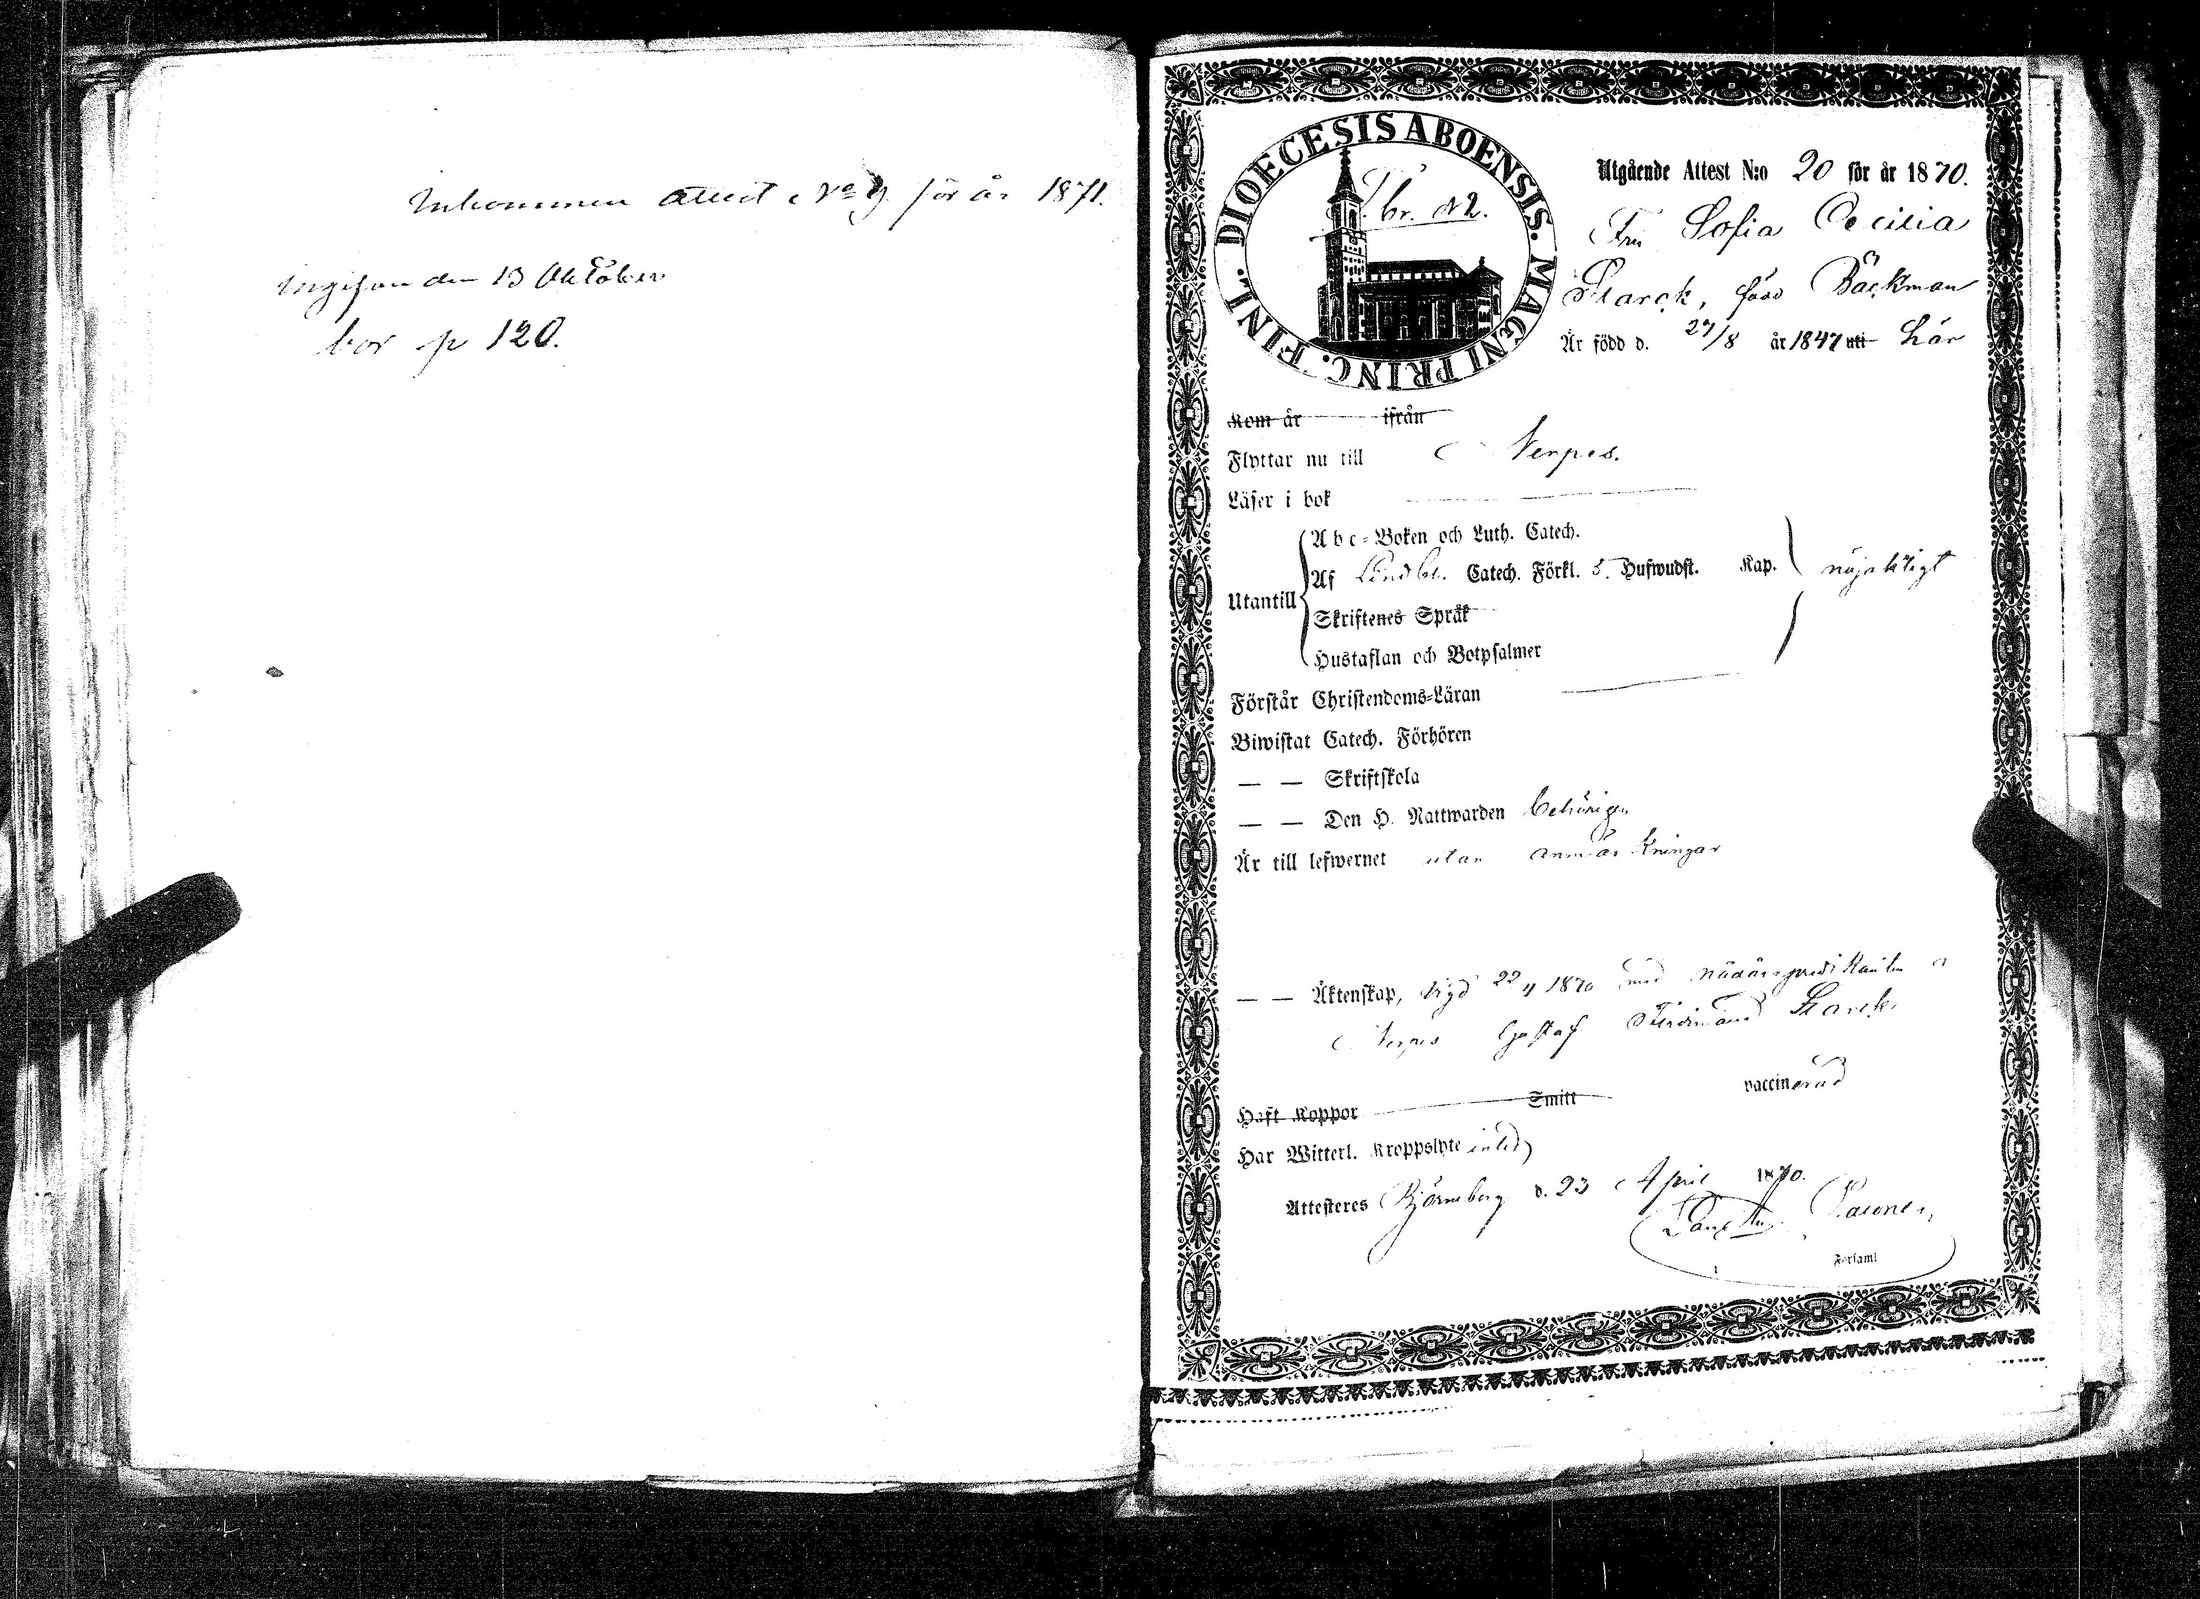 Inkommen attest No 9. för år 1871.
Ingifven den 13 Oktober
bor p 120.
DIOECESIS ABOENSIS. MAGNI PRINC. FINL.
br. N 2.
Utgående Attest N:o 20 för år 1870.
Fru Sofia Cecilia
Starck, född Bäckman
Är född d. 27/8 år 1847 uti här
Kom år ifrån
Flyttar nu till Nerpes.
Läser i bok
Utantill
Abc-Boken och Luth. Catech.
Af Lindbl. Catech. Förkl. 5. Hufwudst. Kap. nöjaktigt
Skriftenes Språk
Hustaflan och Botpsalmer
Förstår Christendoms-Läran
Biwistat Catech. Förhören
— — Skriftskola
— — Den H. Nattwarden behörigen
Är till lefwernet utan anmärkningar
— — Äktenskap, vigd 22/4 1870 med nådårspredikanten i
Nerpes Gustaf Ferdinand Starck.
Haft Koppor Smitt vaccinerad
Har Witterl. Kroppslyte intet
Attesteres Björneborg d. 23 April 1870.
Församl